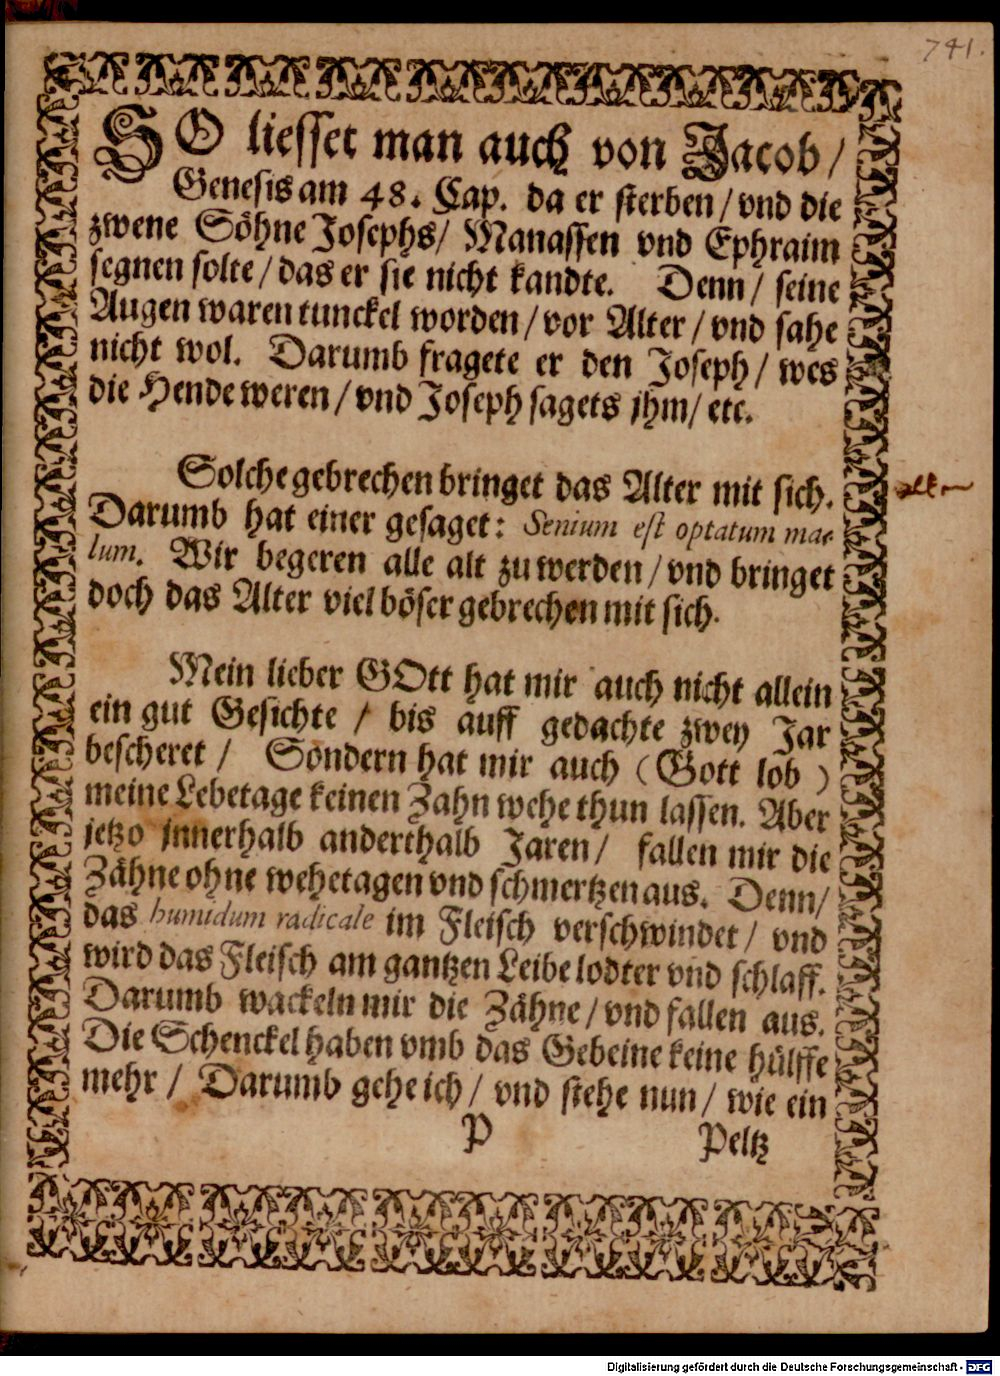 741.
SO liesset man auch von Jacob /
Genesis am 48. Cap. da er sterben / vnd die
zwene Söhne Josephs / Manassen vnd Ephraim
segnen solte / das er sie nicht kandte. Denn / seine
Augen waren tunckel worden / vor Alter / vnd sahe
nicht wol. Darumb fragete er den Joseph / wes
die Hende weren / vnd Joseph sagets jhm / etc.
Solche gebrechen bringet das Alter mit sich.
Darumb hat einer gesaget: Senium est optatum ma-
lum. Wir begeren alle alt zu werden / vnd bringet
doch das Alter viel böser gebrechen mit sich.
Mein lieber GOtt hat mir auch nicht allein
ein gut Gesichte / bis auff gedachte zwey Jar
bescheret / Sondern hat mir auch (Gott lob)
meine Lebetage keinen Zahn wehe thun lassen. Aber
jetzo jnnerhalb anderthalb Jaren / fallen mir die
Zähne ohne wehetagen vnd schmertzen aus. Denn /
das humidum radicale im Fleisch verschwindet / vnd
wird das Fleisch am gantzen Leibe lodter vnd schlaff.
Darumb wackeln mir die Zähne / vnd fallen aus.
Die Schenckel haben vmb das Gebeine keine hülffe
mehr / Darumb gehe ich / vnd stehe nun / wie ein
P Peltz
Digitalisierung gefördert durch die Deutsche Forschungsgemeinschaft - DFG